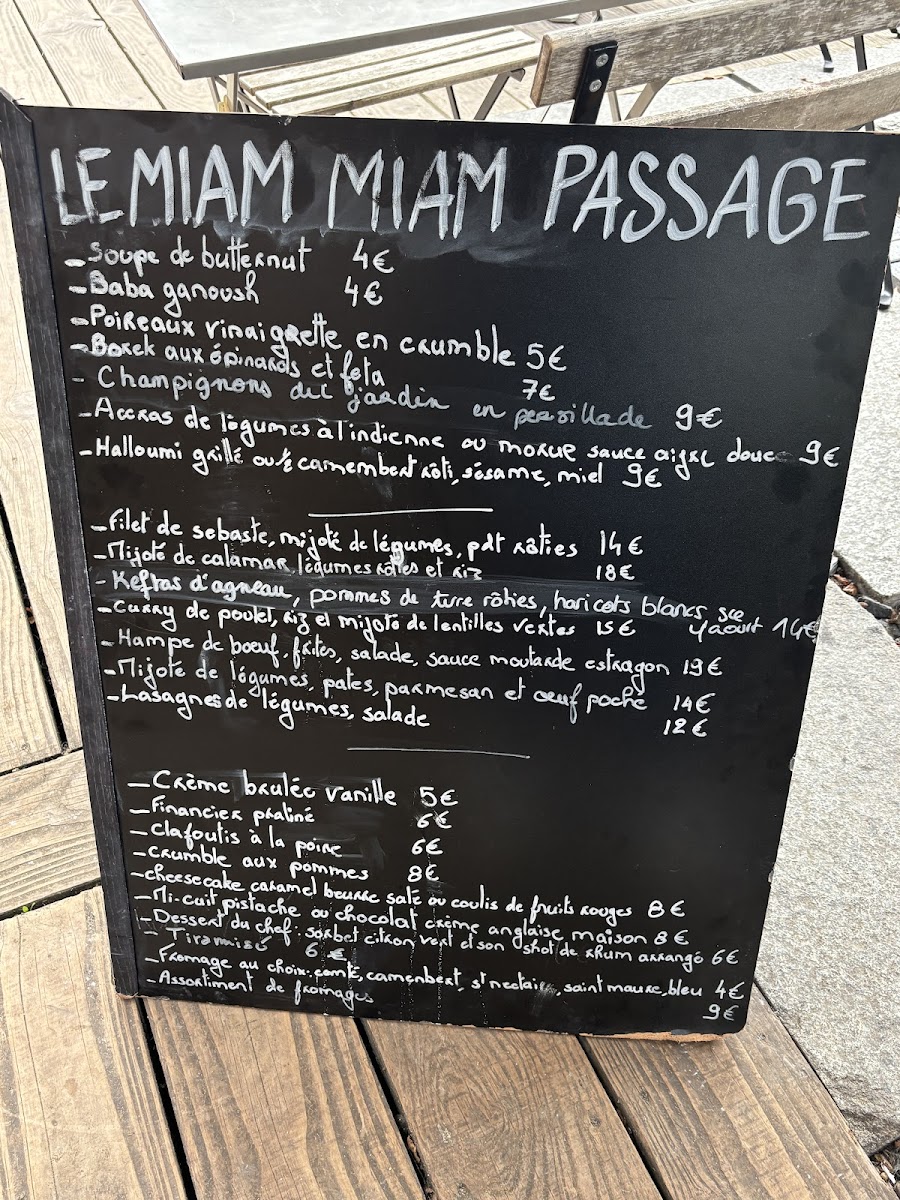 LE MIAM MIAM PASSAGE
- Soupe de butternut 4€
- Baba ganoush 4€
- Poireaux vinaigrette en crumble 5€
- Borek aux épinards et feta 7€
- Champignons du jardin en persillade 9€
- Accras de légumes à l'indienne ou morue sauce aigre douce 9€
- Halloumi grillé ou ½ camembert rôti, sésame, miel 9€
- Filet de sebaste, mijoté de légumes, pdt rôties 14€
- Mijoté de calamar, légumes rôties et riz 18€
- Keftas d'agneau, pommes de terre rôties, haricots blancs sce yaourt 14€
- Curry de poulet, riz et mijoté de lentilles vertes 15€
- Hampe de boeuf, frites, salade, sauce moutarde estragon 19€
- Mijoté de légumes, pates, parmesan et oeuf poché 14€
- Lasagnes de légumes, salade 12€
- Crème brulée vanille 5€
- Financier praliné 6€
- Clafoutis à la poire 6€
- Crumble aux pommes 8€
- cheesecake caramel beurre salé ou coulis de fruits rouges 8€
- Mi-cuit pistache ou chocolat crème anglaise maison 8€
- Dessert du chef: sorbet citron vert et son shot de rhum arrangé 6€
- Tiramisé 6€
- Fromage au choix: comté, camembert, st nectaire, saint maure, bleu 4€
- Assortiment de fromages 9€